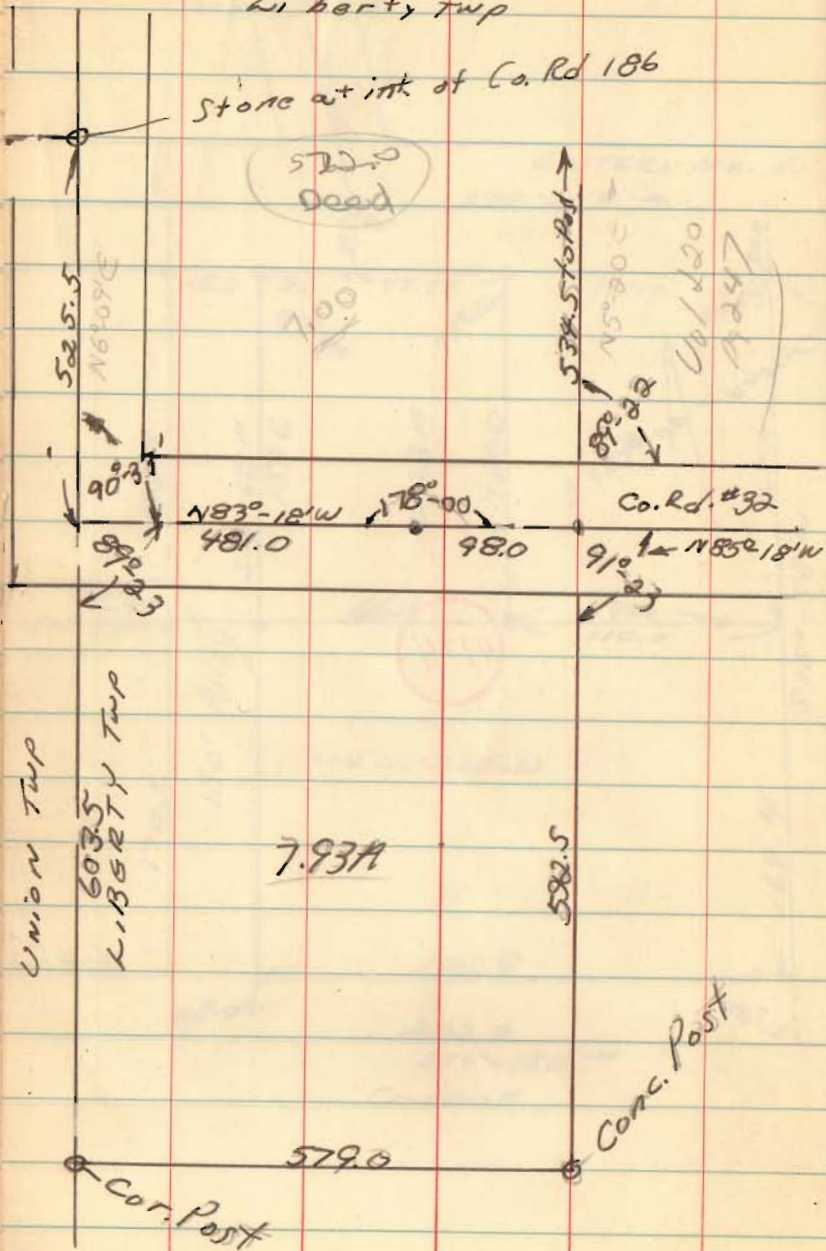 Liberty Twp
Stone at int. of Co. Rd 186
572.0
Deed
525.5
N6°04'E
7.00
534.5 to Post →
N5°20'E
Vol 420
P. 247
89°-22
N83°-18'W
178°-00
Co. Rd. #32
481.0
98.0
N85°18'W
89°-23
91°-23
UNION TWP
603.5
LIBERTY TWP
7.93A
592.5
Conc. Post
579.0
Cor. Post